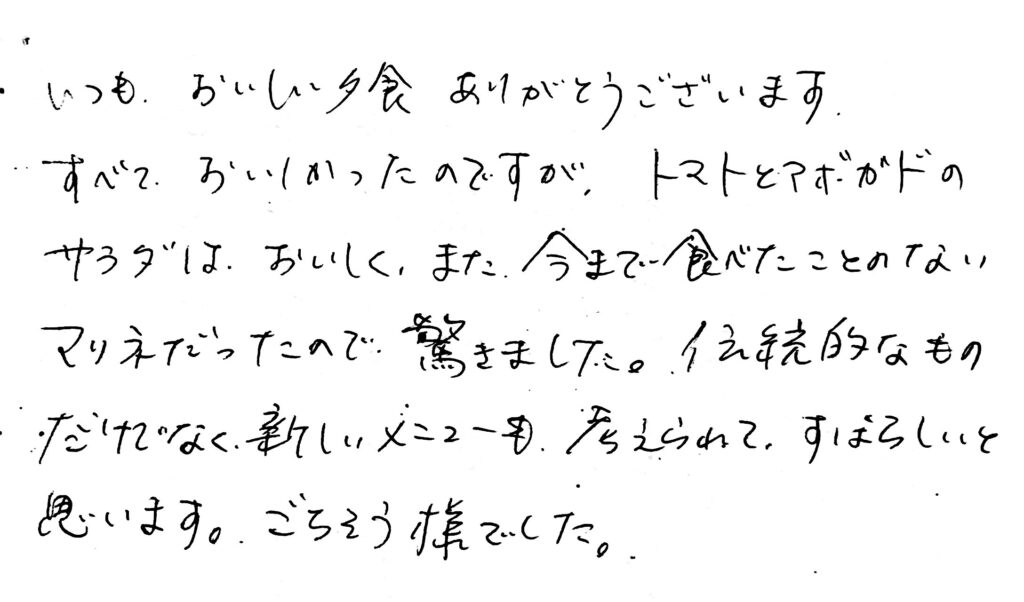 いつも、おいしい夕食 ありがとうございます。
すべて、おいしかったのですが、トマトとアボガドの
サラダは、おいしく、また、今まで食べたことのない
マリネだったので、驚きました。伝統的なもの
だけでなく、新しいメニューも、考えられて、すばらしいと
思います。ごちそう様でした。